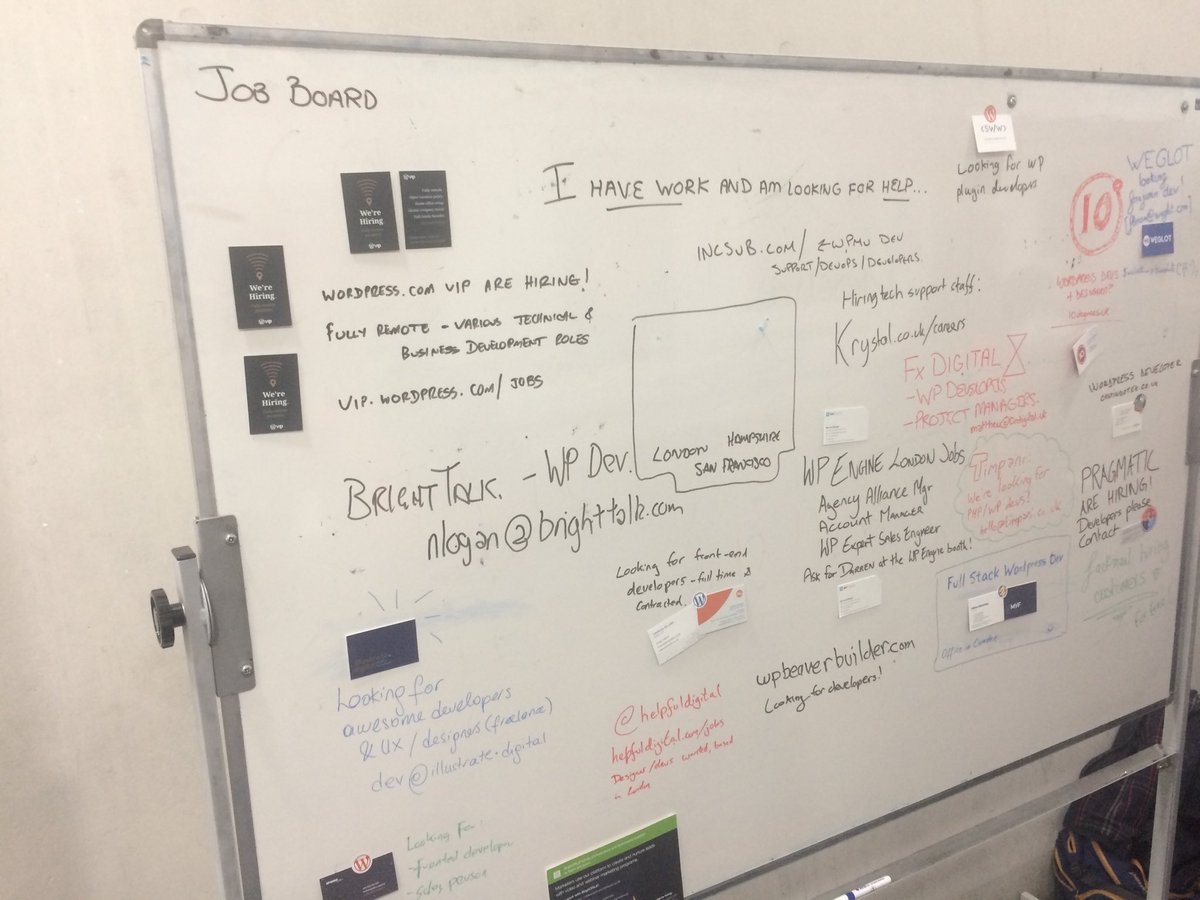 JOB BOARD
I HAVE WORK AND AM LOOKING FOR HELP...
vip
We're
Hiring
vip
We're
Hiring
vip
We're
Hiring
vip
WORDPRESS.COM VIP ARE HIRING!
FULLY REMOTE - VARIOUS TECHNICAL &
BUSINESS DEVELOPMENT ROLES
VIP.WORDPRESS.COM/JOBS
BRIGHTTALK. - WP DEV.
nlogan@brighttalk.com
LONDON HAMPSHIRE
SAN FRANCISCO
INCSUB.COM/ WPMU DEV
SUPPORT/DEVOPS/DEVELOPERS
Hiring tech support staff!
Krystal.co.uk/careers
FX DIGITAL
- WP DEVELOPERS
- PROJECT MANAGERS
Looking for WP
plugin developers
10°
WORDPRESS DEVS
+ DESIGNERS?
10degrees.uk
WEGLOT
looking
for
WEGLOT
WORDPRESS DEVELOPER
WP ENGINE LONDON JOBS
Agency Alliance Mgr
Account Manager
WP Expert Sales Engineer
Ask for DARREN at the WP Engine booth!
Timpani
We're looking for
PHP/WP devs!
hello@timpani.co.uk
PRAGMATIC
ARE HIRING!
Developers please
Contact
Full Stack Wordpress Dev
MVF
Office in Camden
Looking for front-end
developers - full time &
contracted.
wpbeaverbuilder.com
Looking for developers!
Looking for
awesome developers
& UX / designers (freelance)
dev@illustrate.digital
@helpfuldigital
helpfuldigital.com/jobs
Designers/devs wanted, based
in London
Looking For:
Marketers use our platform to create and nurture leads
with video and webinar marketing programs.